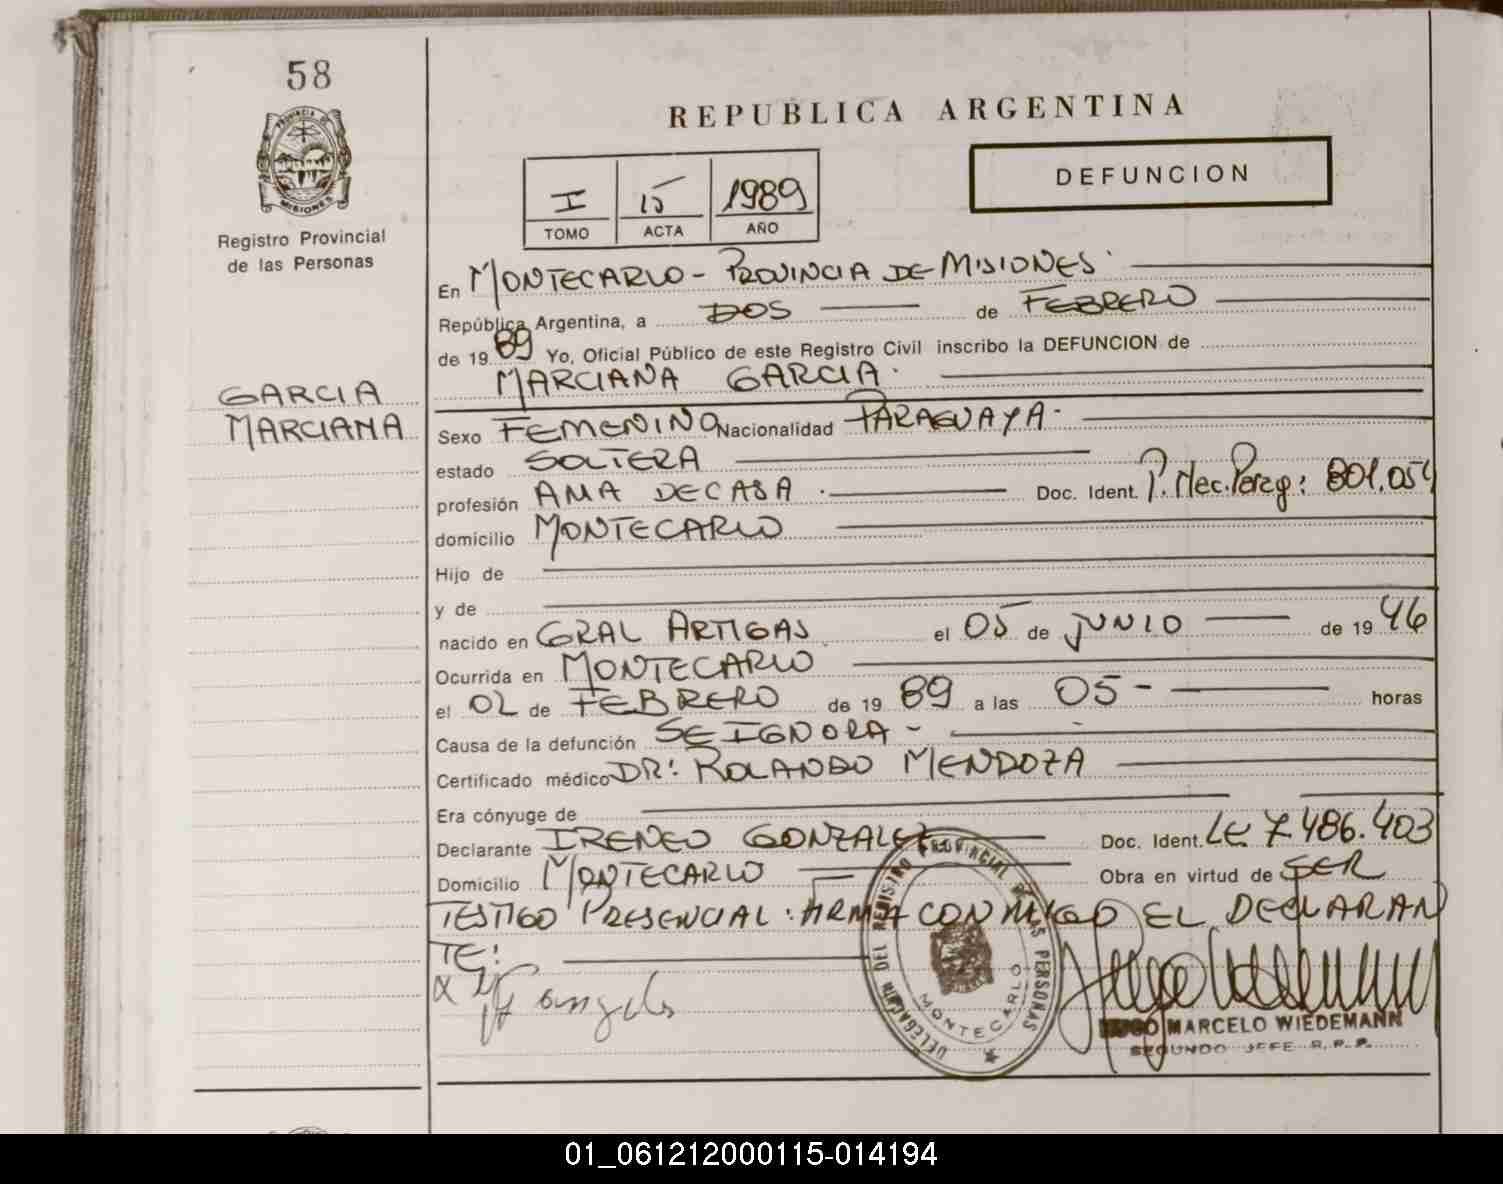 58
PROVINCIA DE
MISIONES
Registro Provincial
de las Personas
GARCIA
MARCIANA
REPUBLICA ARGENTINA
I 15 1989
TOMO ACTA AÑO
DEFUNCION
En MONTECARLO - PROVINCIA DE MISIONES.
República Argentina, a DOS de FEBRERO
de 19 89 Yo, Oficial Público de este Registro Civil inscribo la DEFUNCION de
MARCIANA GARCIA.
Sexo FEMENINO Nacionalidad PARAGUAYA.
estado SOLTERA
profesión AMA DE CASA. Doc. Ident. P. Mec. Pereg: 801.054
domicilio MONTECARLO
Hijo de
y de
nacido en GRAL ARTIGAS el 05 de JUNIO de 19 46
Ocurrida en MONTECARLO
el 02 de FEBRERO de 19 89 a las 05 - horas
Causa de la defunción SE IGNORA -
Certificado médico DR: ROLANDO MENDOZA
Era cónyuge de
Declarante IRENEO GONZALEZ Doc. Ident. LE 7.486.403
Domicilio MONTECARLO Obra en virtud de SER
TESTIGO PRESENCIAL: FIRMA CONMIGO EL DECLARAN
TE:
DELEGACION DEL REGISTRO PROVINCIAL DE LAS PERSONAS
MONTECARLO
HUGO MARCELO WIEDEMANN
SEGUNDO JEFE R.P.P.
01_061212000115-014194